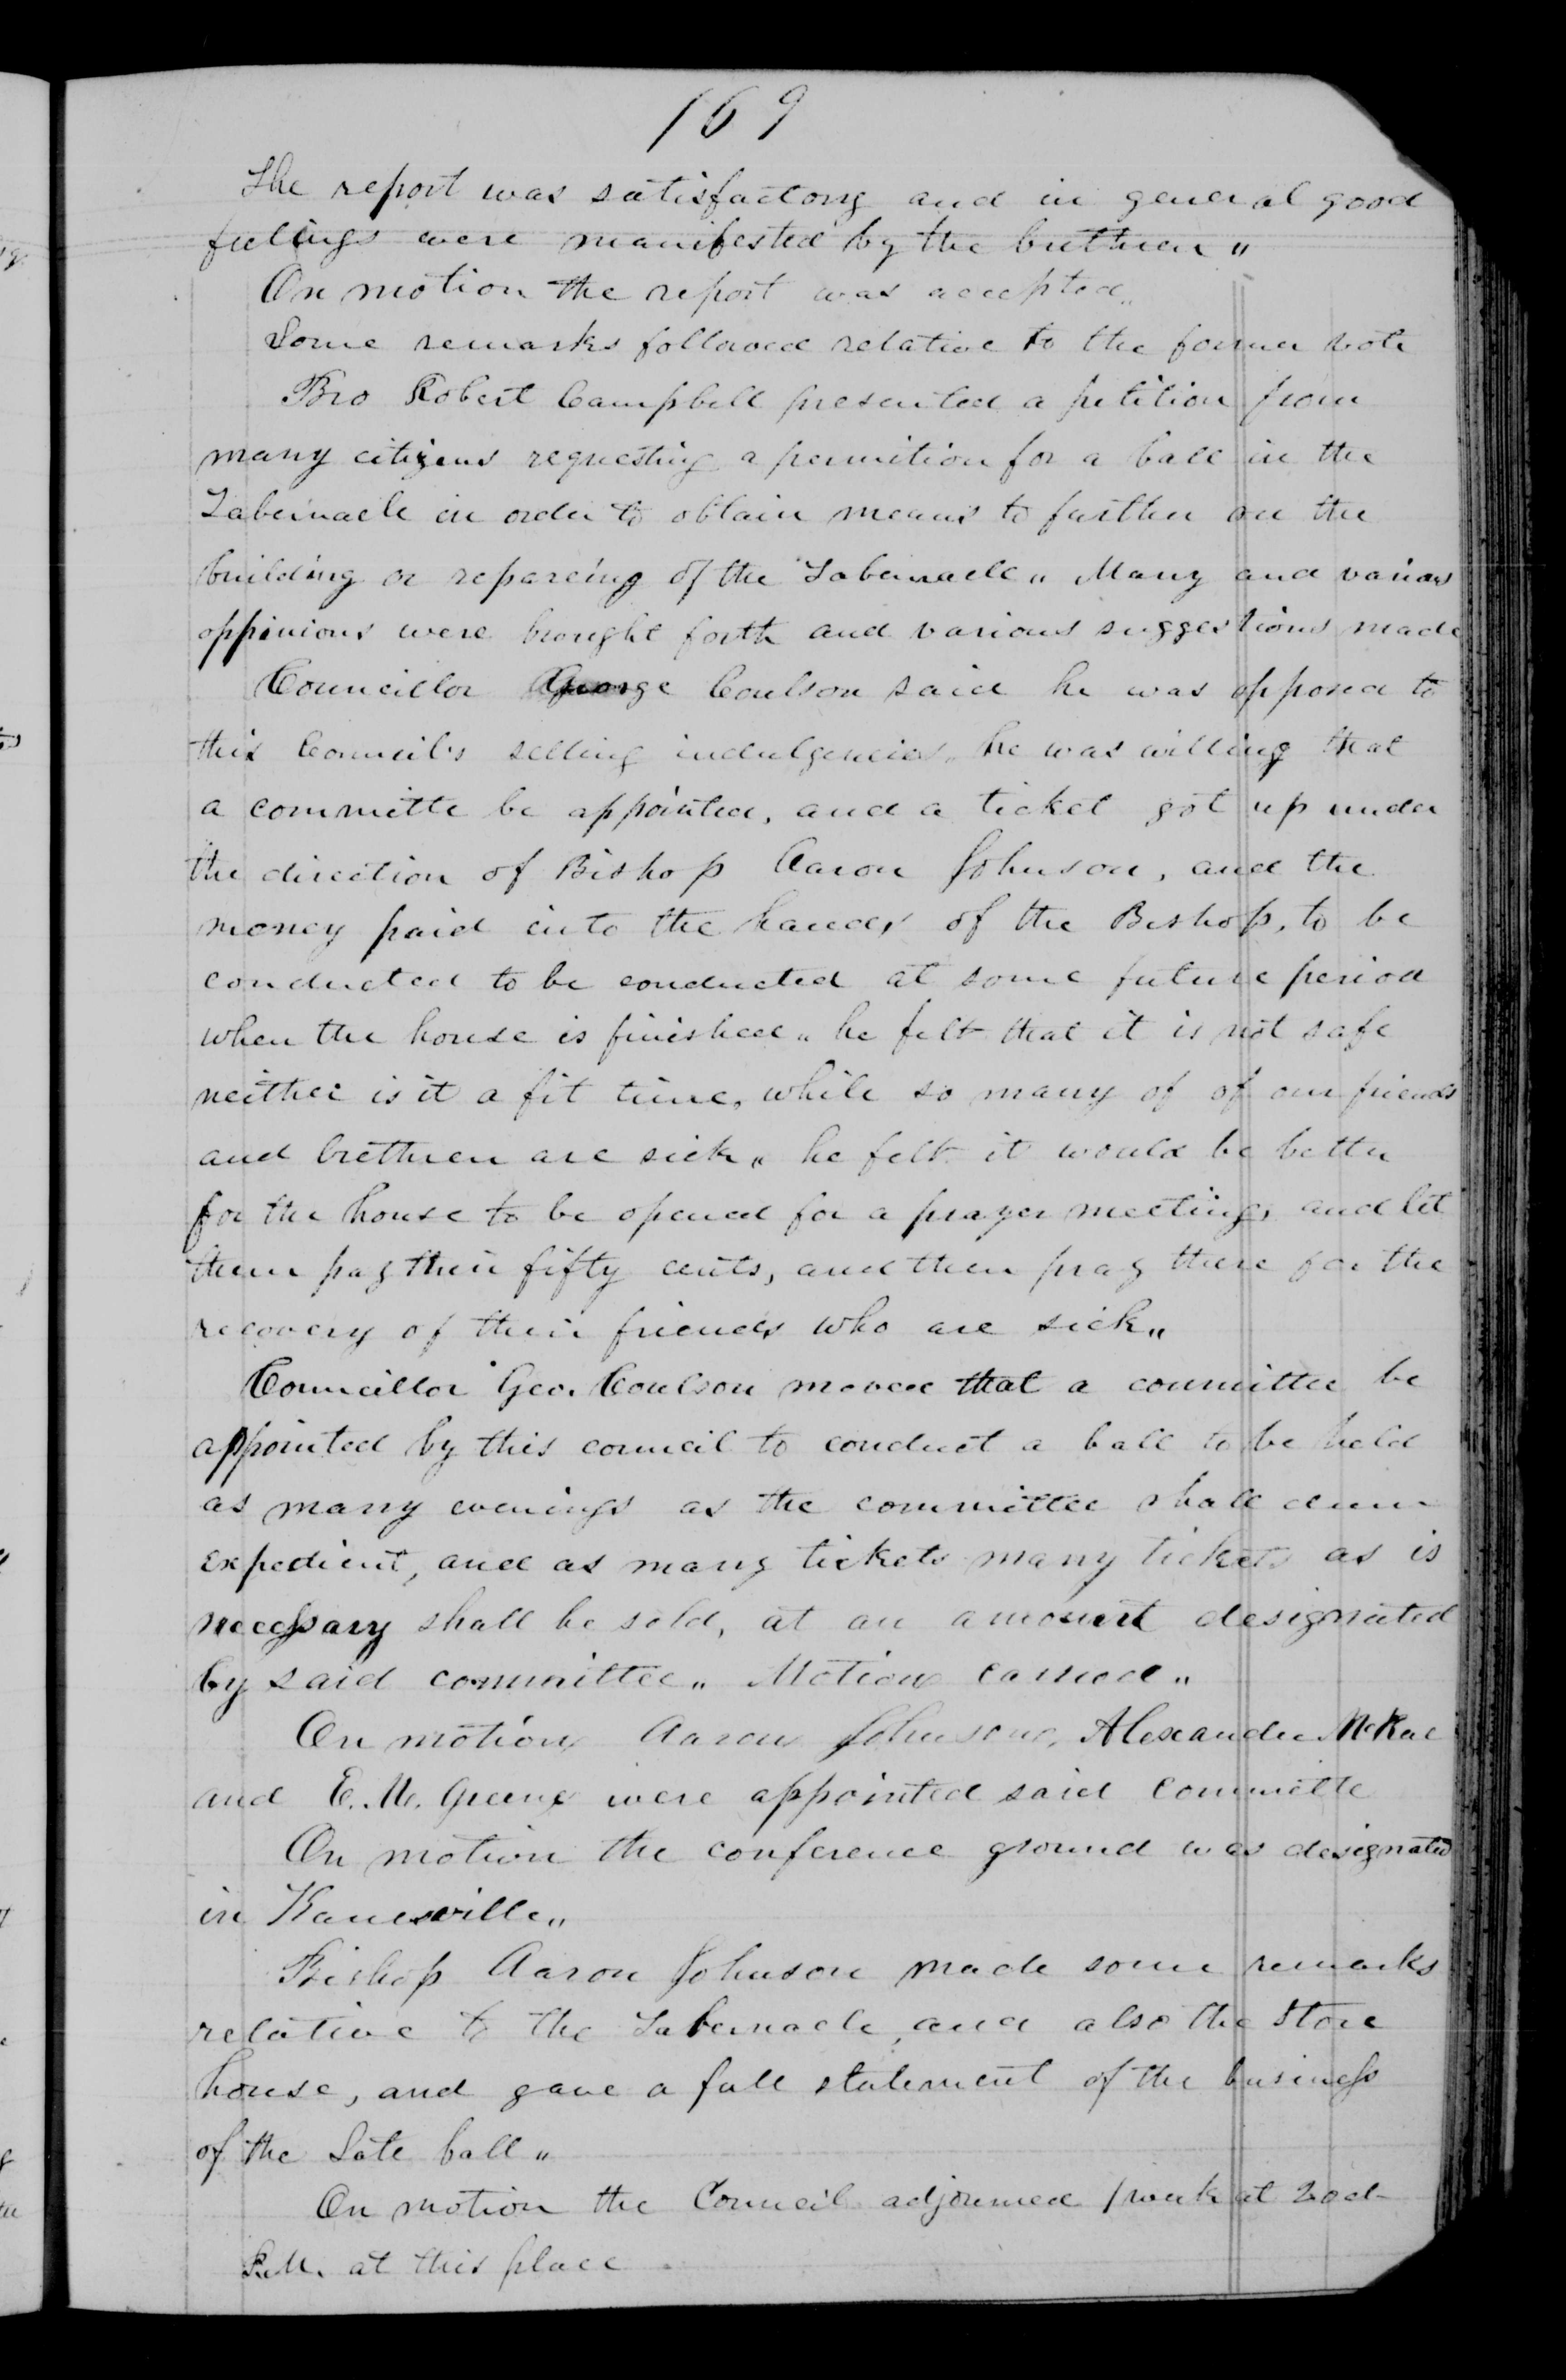 169
The report was satisfactory and in general good
feelings were manifested by the brethren "
On motion the report was accepted "
Some remarks followed relative to the former vote
Bro Robert Campbell presented a petition from
many citizens requesting a permition for a ball in the
Tabernacle in order to obtain means to further on the
building or repareing of the Tabernacle " Many and various
oppinions were brought forth and various suggestions made
Councillor George Coulson said he was opposed to
this Council's selling indulgencies " he was willing that
a committe be appointed, and a ticket got up under
the direction of Bishop Aaron Johnson, and the
money paid into the hands of the Bishop, to be
conducted to be conducted at some future period
when the house is finished " he felt that it is not safe
neither is it a fit time, while so many of of our friends
and brethren are sick " he felt it would be better
for the house to be opened for a prayer meeting, and let
them pay their fifty cents, and then pray there for the
recovery of their friends who are sick "
Councillor Geo. Coulson moved that a committee be
appointed by this council to conduct a ball to be held
as many evenings as the committee shall deem
expedient, and as many tickets many tickets as is
necessary shall be sold, at an amount designated
by said committee " Motion carried "
On motion Aaron Johnson, Alexander McRae
and E. M. Greene were appointed said committe
On motion the conference ground was designated
in Kanesville "
Bishop Aaron Johnson made some remarks
relative to the Tabernacle, and also the Store
house, and gave a full statement of the business
of the late ball "
On motion the Council adjourned 1 week at 2 ocl-
P.M. at this place